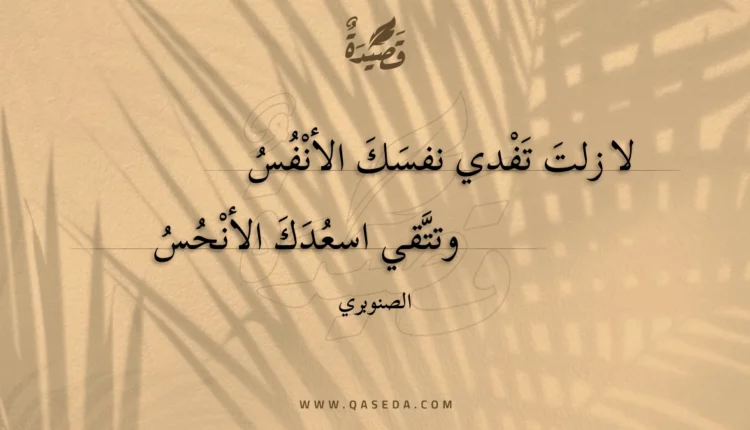 قَصِيْدَةٌ
لا زلتَ تَفْدي نفسَكَ الأنْفُسُ
وتتَّقي اسعُدَكَ الأنْحُسُ
الصنوبري
WWW.QASEDA.COM